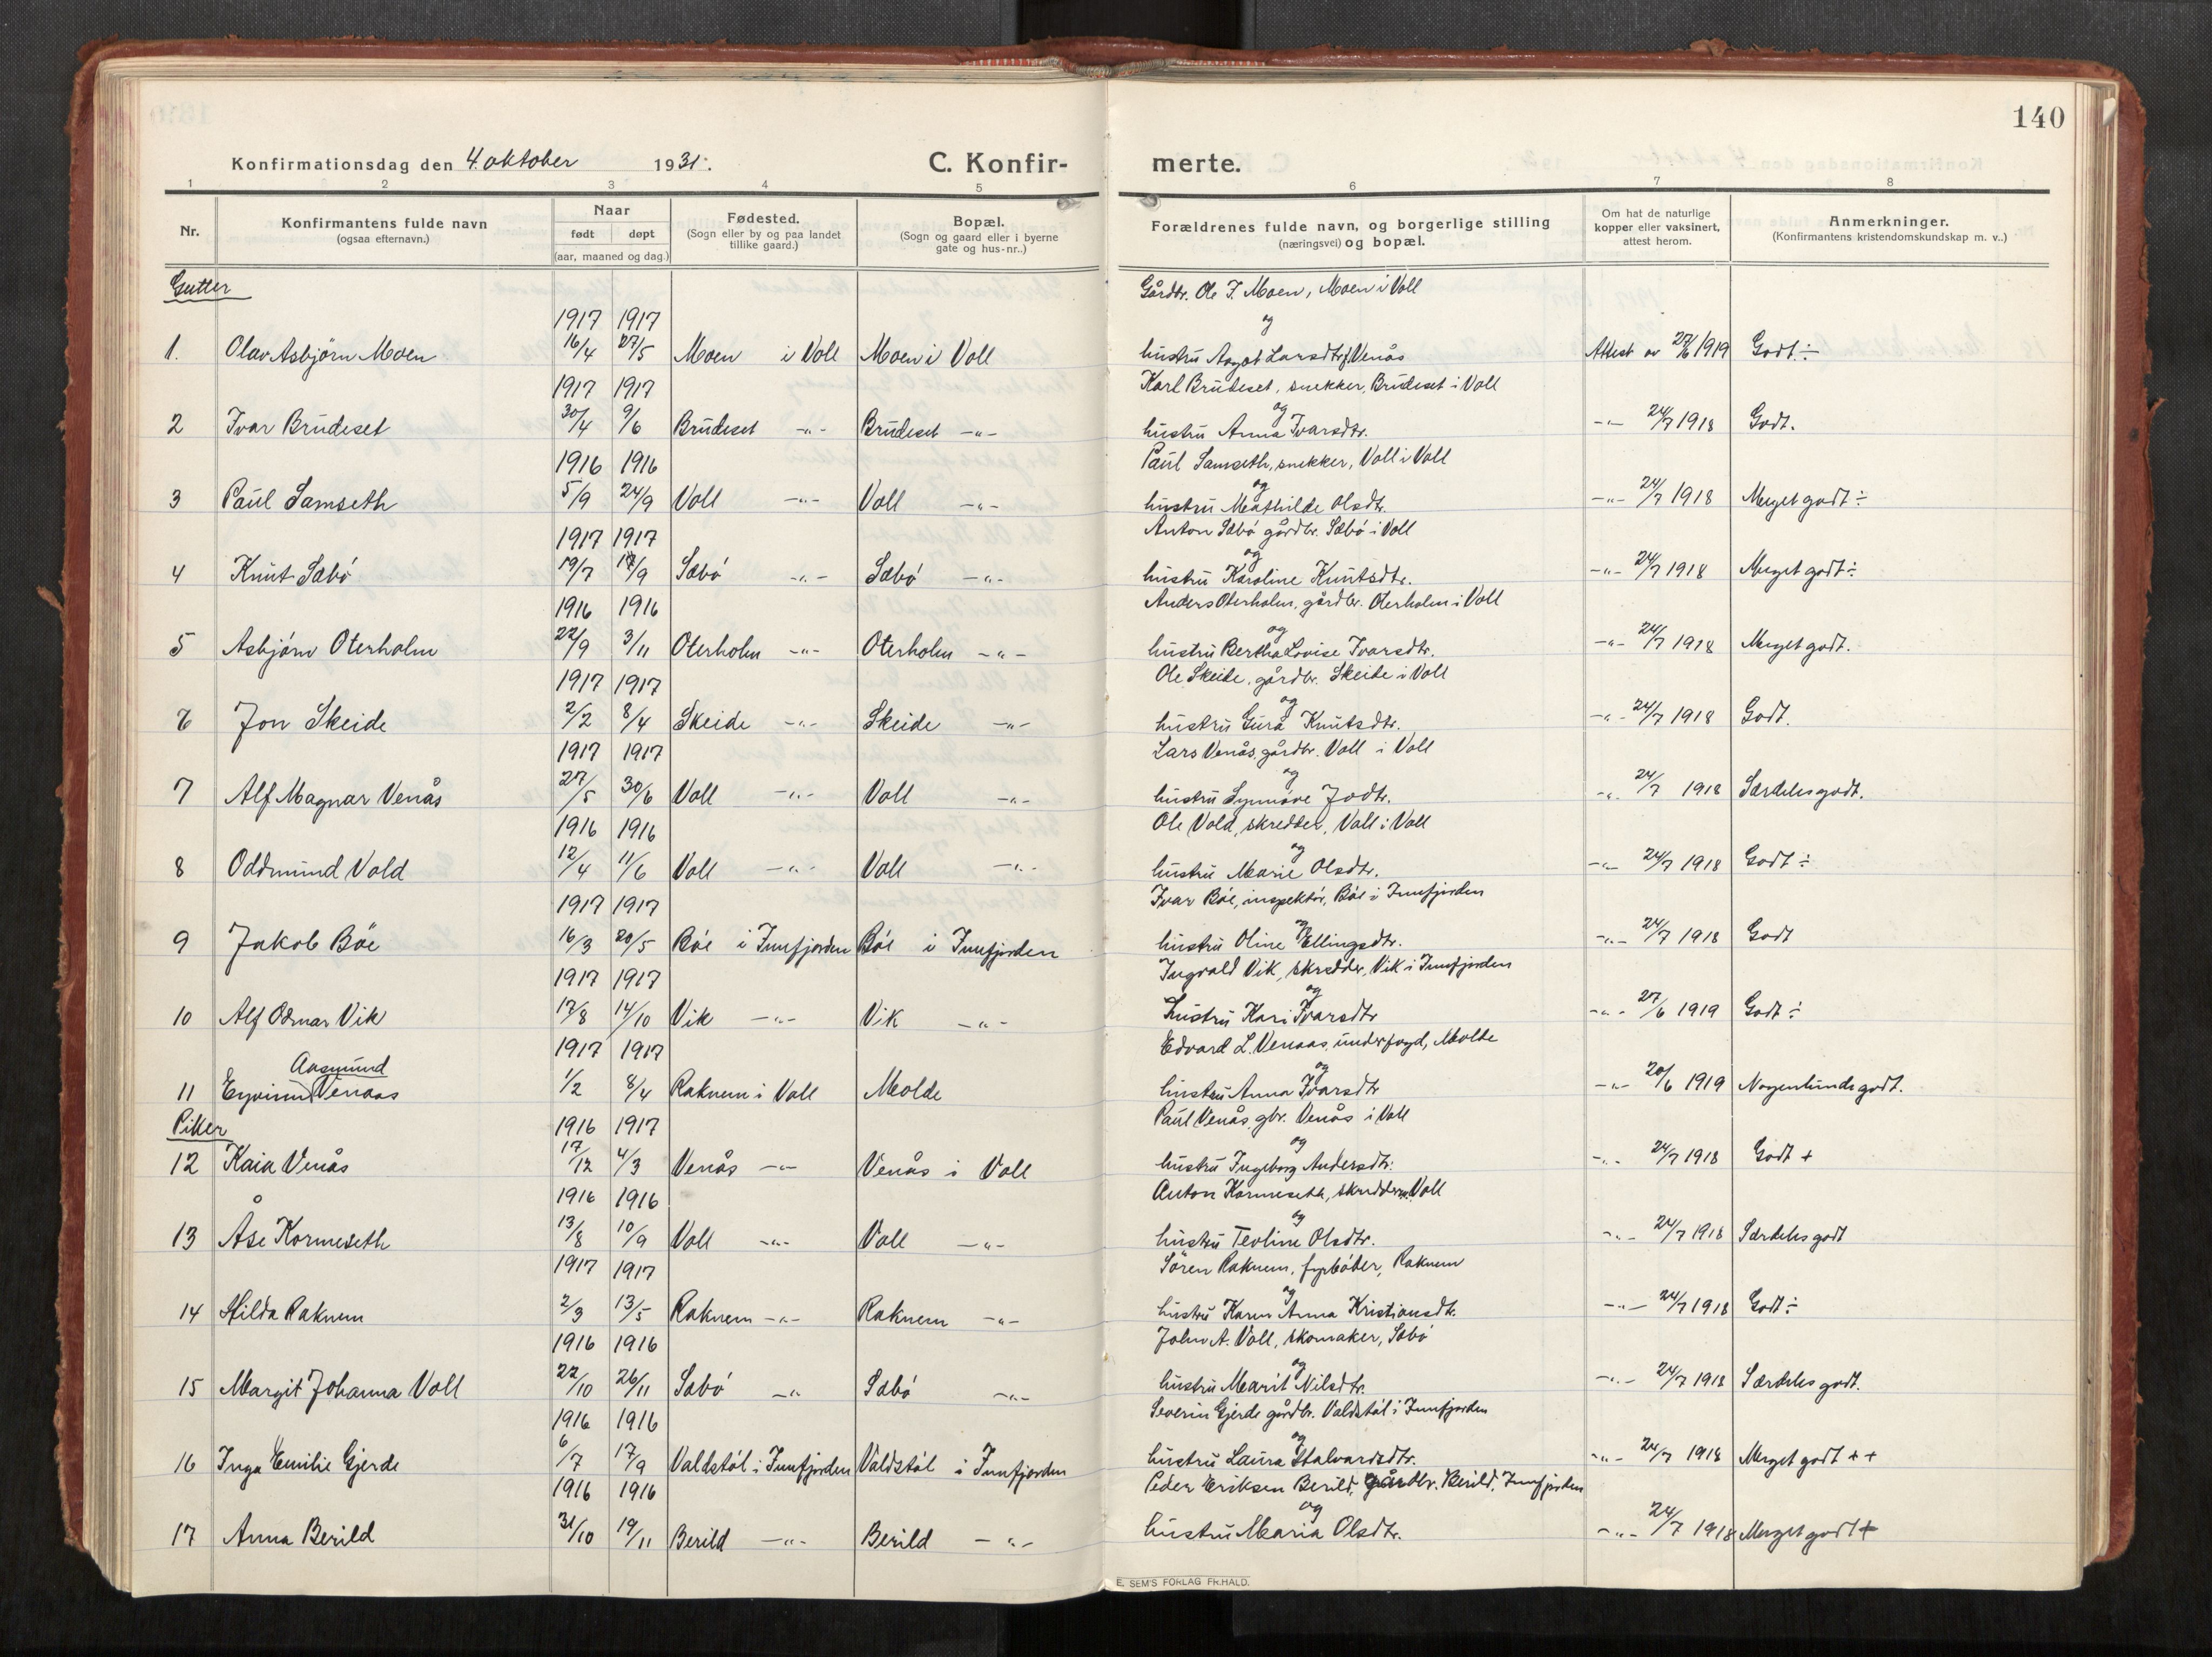 140
Konfirmationsdag den 4. oktober 1931.
C. Konfir-
merte.
1 2 3 4 5 6 7 8
Nr.
Konfirmantens fulde navn
(ogsaa efternavn.)
Naar
født døpt
(aar, maaned og dag.)
Fødested.
(Sogn eller by og paa landet
tillike gaard.)
Bopæl.
(Sogn og gaard eller i byerne
gate og hus-nr..)
Forældrenes fulde navn, og borgerlige stilling
(næringsvei) og bopæl.
Om hat de naturlige
kopper eller vaksinert,
attest herom.
Anmerkninger.
(Konfirmantens kristendomskundskap m. v..)
Gutter
Gårdbr. Ole J. Moen, Moen i Voll
1917 1917 og
1. Olav Asbjörn Moen 16/4 27/5 Moen i Voll Moen i Voll hustru Aagot Larsdtr f. Venås Attest av 27/6 1919 Godt ÷
1917 1917 Karl Brudeset, snekker, Brudeset i Voll
og
2 Ivar Brudeset 30/4 9/6 Brudeset -"- Brudeset -"- hustru Anna Ivarsdtr. -"- 24/7 1918 Godt.
1916 1916 Paul Samseth, snekker, Voll i Voll
og
3 Paul Samseth 5/9 24/9 Voll -"- Voll -"- hustru Mathilde Olsdtr. -"- 24/7 1918 Meget godt ÷
1917 1917 Anton Sæbö gårdbr. Sæbö i Voll
og
4 Knut Sæbö 19/7 17/9 Sæbö -"- Sæbö -"- hustru Karoline Knutsdtr. -"- 24/7 1918 Meget godt ÷
1916 1916 Anders Oterholm, gårdbr. Oterholm i Voll
og
5 Asbjörn Oterholm 22/9 3/11 Oterholm -"- Oterholm -"- hustru Bertha Lovise Ivarsdtr. -"- 24/7 1918 Meget godt.
1917 1917 Ole Skeide, gårdbr. Skeide i Voll
og
6 Jon Skeide 2/2 8/4 Skeide -"- Skeide -"- hustru Gura Knutsdtr. -"- 24/7 1918 Godt.
1917 1917 Lars Venås, gårdbr. Voll i Voll
og
7 Alf Magnar Venås 27/5 30/6 Voll -"- Voll -"- hustru Synnöve Jodtr. -"- 24/7 1918 Særdeles godt.
1916 1916 Ole Vold, skredder, Voll i Voll
og
8 Oddmund Vold 12/4 11/6 Voll -"- Voll -"- hustru Marie Olsdtr. -"- 24/7 1918 Godt ÷
1917 1917 Ivar Böe, inspektör, Böe i Innfjorden
og
9 Jakob Böe 16/3 20/5 Böe i Innfjorden Böe i Innfjorden hustru Oline Ellingsdtr. -"- 24/7 1918 Godt
1917 1917 Ingvald Vik, skredder, Vik i Innfjorden
og
10 Alf Odmar Vik 17/8 14/10 Vik -"- Vik -"- hustru Kari Ivarsdtr -"- 27/6 1919 Godt ÷
1917 1917 Edvard L. Venaas, underfogd, Molde
Aasmund og
11 Eyvinn Venaas 1/2 8/4 Raknem i Voll Molde hustru Anna Ivarsdtr -"- 20/6 1919 Nogenlunde godt.
Piker 1916 1917 Paul Venås, gbr. Venås i Voll
og
12 Kaia Venås 17/12 4/3 Venås -"- Venås i Voll hustru Ingeborg Andersdtr. -"- 24/7 1918 Godt +
1916 1916 Anton Kormeseth, skredder, Voll
og
13 Åse Kormeseth 13/8 10/9 Voll -"- Voll -"- hustru Teoline Olsdtr. -"- 24/7 1918 Særdeles godt
1917 1917 Sören Raknem, fyrböter, Raknem
og
14 Hilda Raknem 2/3 13/5 Raknem -"- Raknem -"- hustru Karen Anna Kristiansdtr. -"- 24/7 1918 Godt ÷
1916 1916 John A. Voll, skomaker, Sæbö
og
15 Margit Johanna Voll 22/10 26/11 Sæbö -"- Sæbö -"- hustru Marit Nilsdtr. -"- 24/7 1918 Særdeles godt.
1916 1916 Severin Gjerde gårdbr. Valdstöl i Innfjorden
og
16 Inga Emilie Gjerde 6/7 17/9 Valdstöl i Innfjorden Valdstöl i Innfjorden hustru Laura Halvardsdtr. -"- 24/7 1918 Meget godt + +
1916 1916 Peder Eriksen Berild, gårdbr. Berild, Innfjorden
og
17 Anna Berild 31/10 19/11 Berild -"- Berild -"- hustru Maria Olsdtr. -"- 24/7 1918 Meget godt +
E. SEM'S FORLAG FR.HALD.